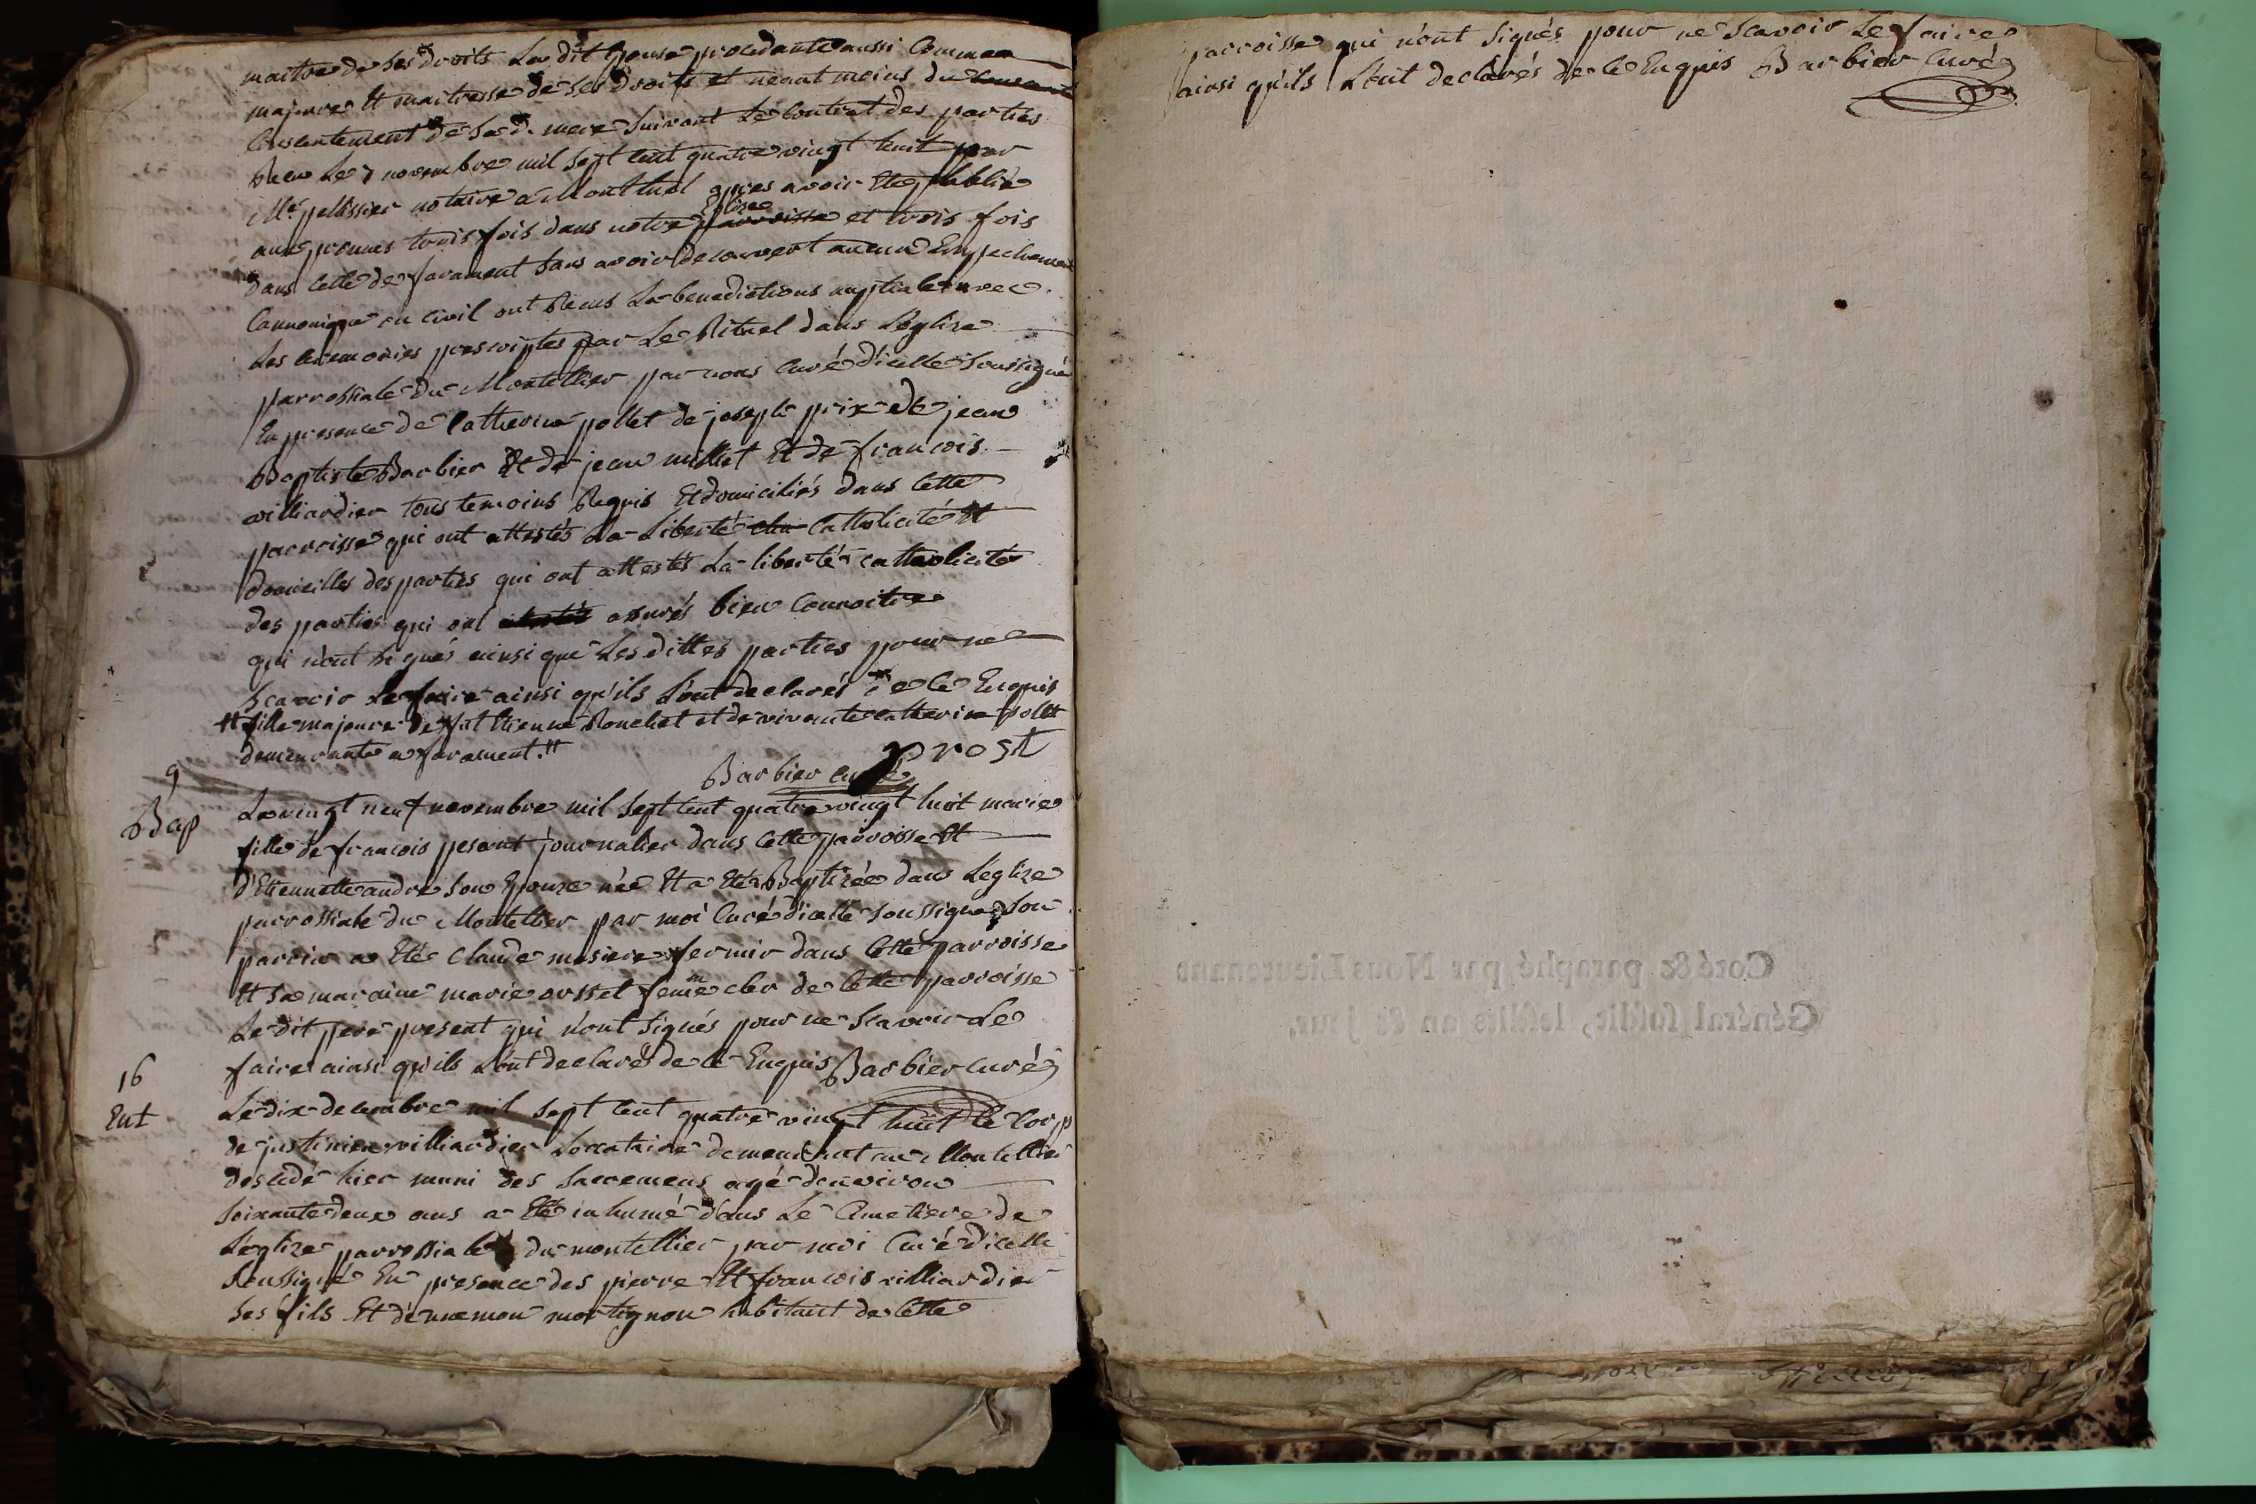 maitre de ses droits La dit Epouse procedante aussi comme
majeure Et maitresse de ses droits et neant moins du
consentement de sa d. mere suivant Le Contrat des parties
Recu Le 7 novembre mil sept cent quatre vingt huit par
Me. pelissier notaire a Montluel apres avoir Eté publié
aux prones trois fois dans notre parroisse Eglise et trois fois
dans celle de farament sans avoir decouvert aucun Empechement
Cannonique ou civil ont Recus La benedictions nuptiale avec
Les ceremonies prescriptes par Le Rituel dans L'eglise
parrossiale du Montellier par nous curé d'icelle soussigné
En presence de Catherine pollet de joseph prix de jean
Baptiste Barbier Et de jean millet Et de francois
villiardier tous temoins Requis Et domiciliés dans cette
parroisse qui ont attestés La Liberté Catholicité Et
domicilles des parties qui ont attestés La liberté catholicité
des parties qui ont assurés bien connoitre
qui n'ont signés ainsi que Les dittes parties pour ne
scavoir Le faire ainsi qu'ils L'ont declarés de ce Enquis
# fille majeure de fut Etienne Ronchet et de vivante catherine pollet
demeurante a farament. #
prost
Barbier curé
9
Bap
Le vingt neuf novembre mil sept cent quatre vingt huit marie
fille de francois pesant journalier dans cette parroisse Et
d'Etiennette andre son Epouse née Et a Eté Baptizée dans L'eglize
parrossiale du Montellier par moi Curé d'icelle soussigné son
parrin a Eté Claude mesiere fermir dans cette parroisse
Et sa maraine marie orsset femme cler de cette parroisse
Le dit pere present qui n'ont signés pour ne scavoir Le
faire ainsi qu'ils L'ont declarés de ce Enquis Barbier curé
16
Ent
Le dix decembre mil sept cent quatre vingt huit le corp
de justinien villiardier Locataire demeurant au Montellier
decedé hier muni des sacremens agé d'environ
soixante deux ans a Eté inhumé dans Le Cimetiere de
L'eglize parrossiale du montellier par moi Curé d'icelle
soussigné En presence des pierre Et francois villiardier
ses fils Et d'ennemon mortignon habitant de cette
parroisse qui n'ont signés pour ne scavoir Le faire
ainsi qu'ils L'ont declarés de ce Enquis Barbier curé
Coté & paraphé par Nous Lieutenant
Général susdit, lesdits an & jour.